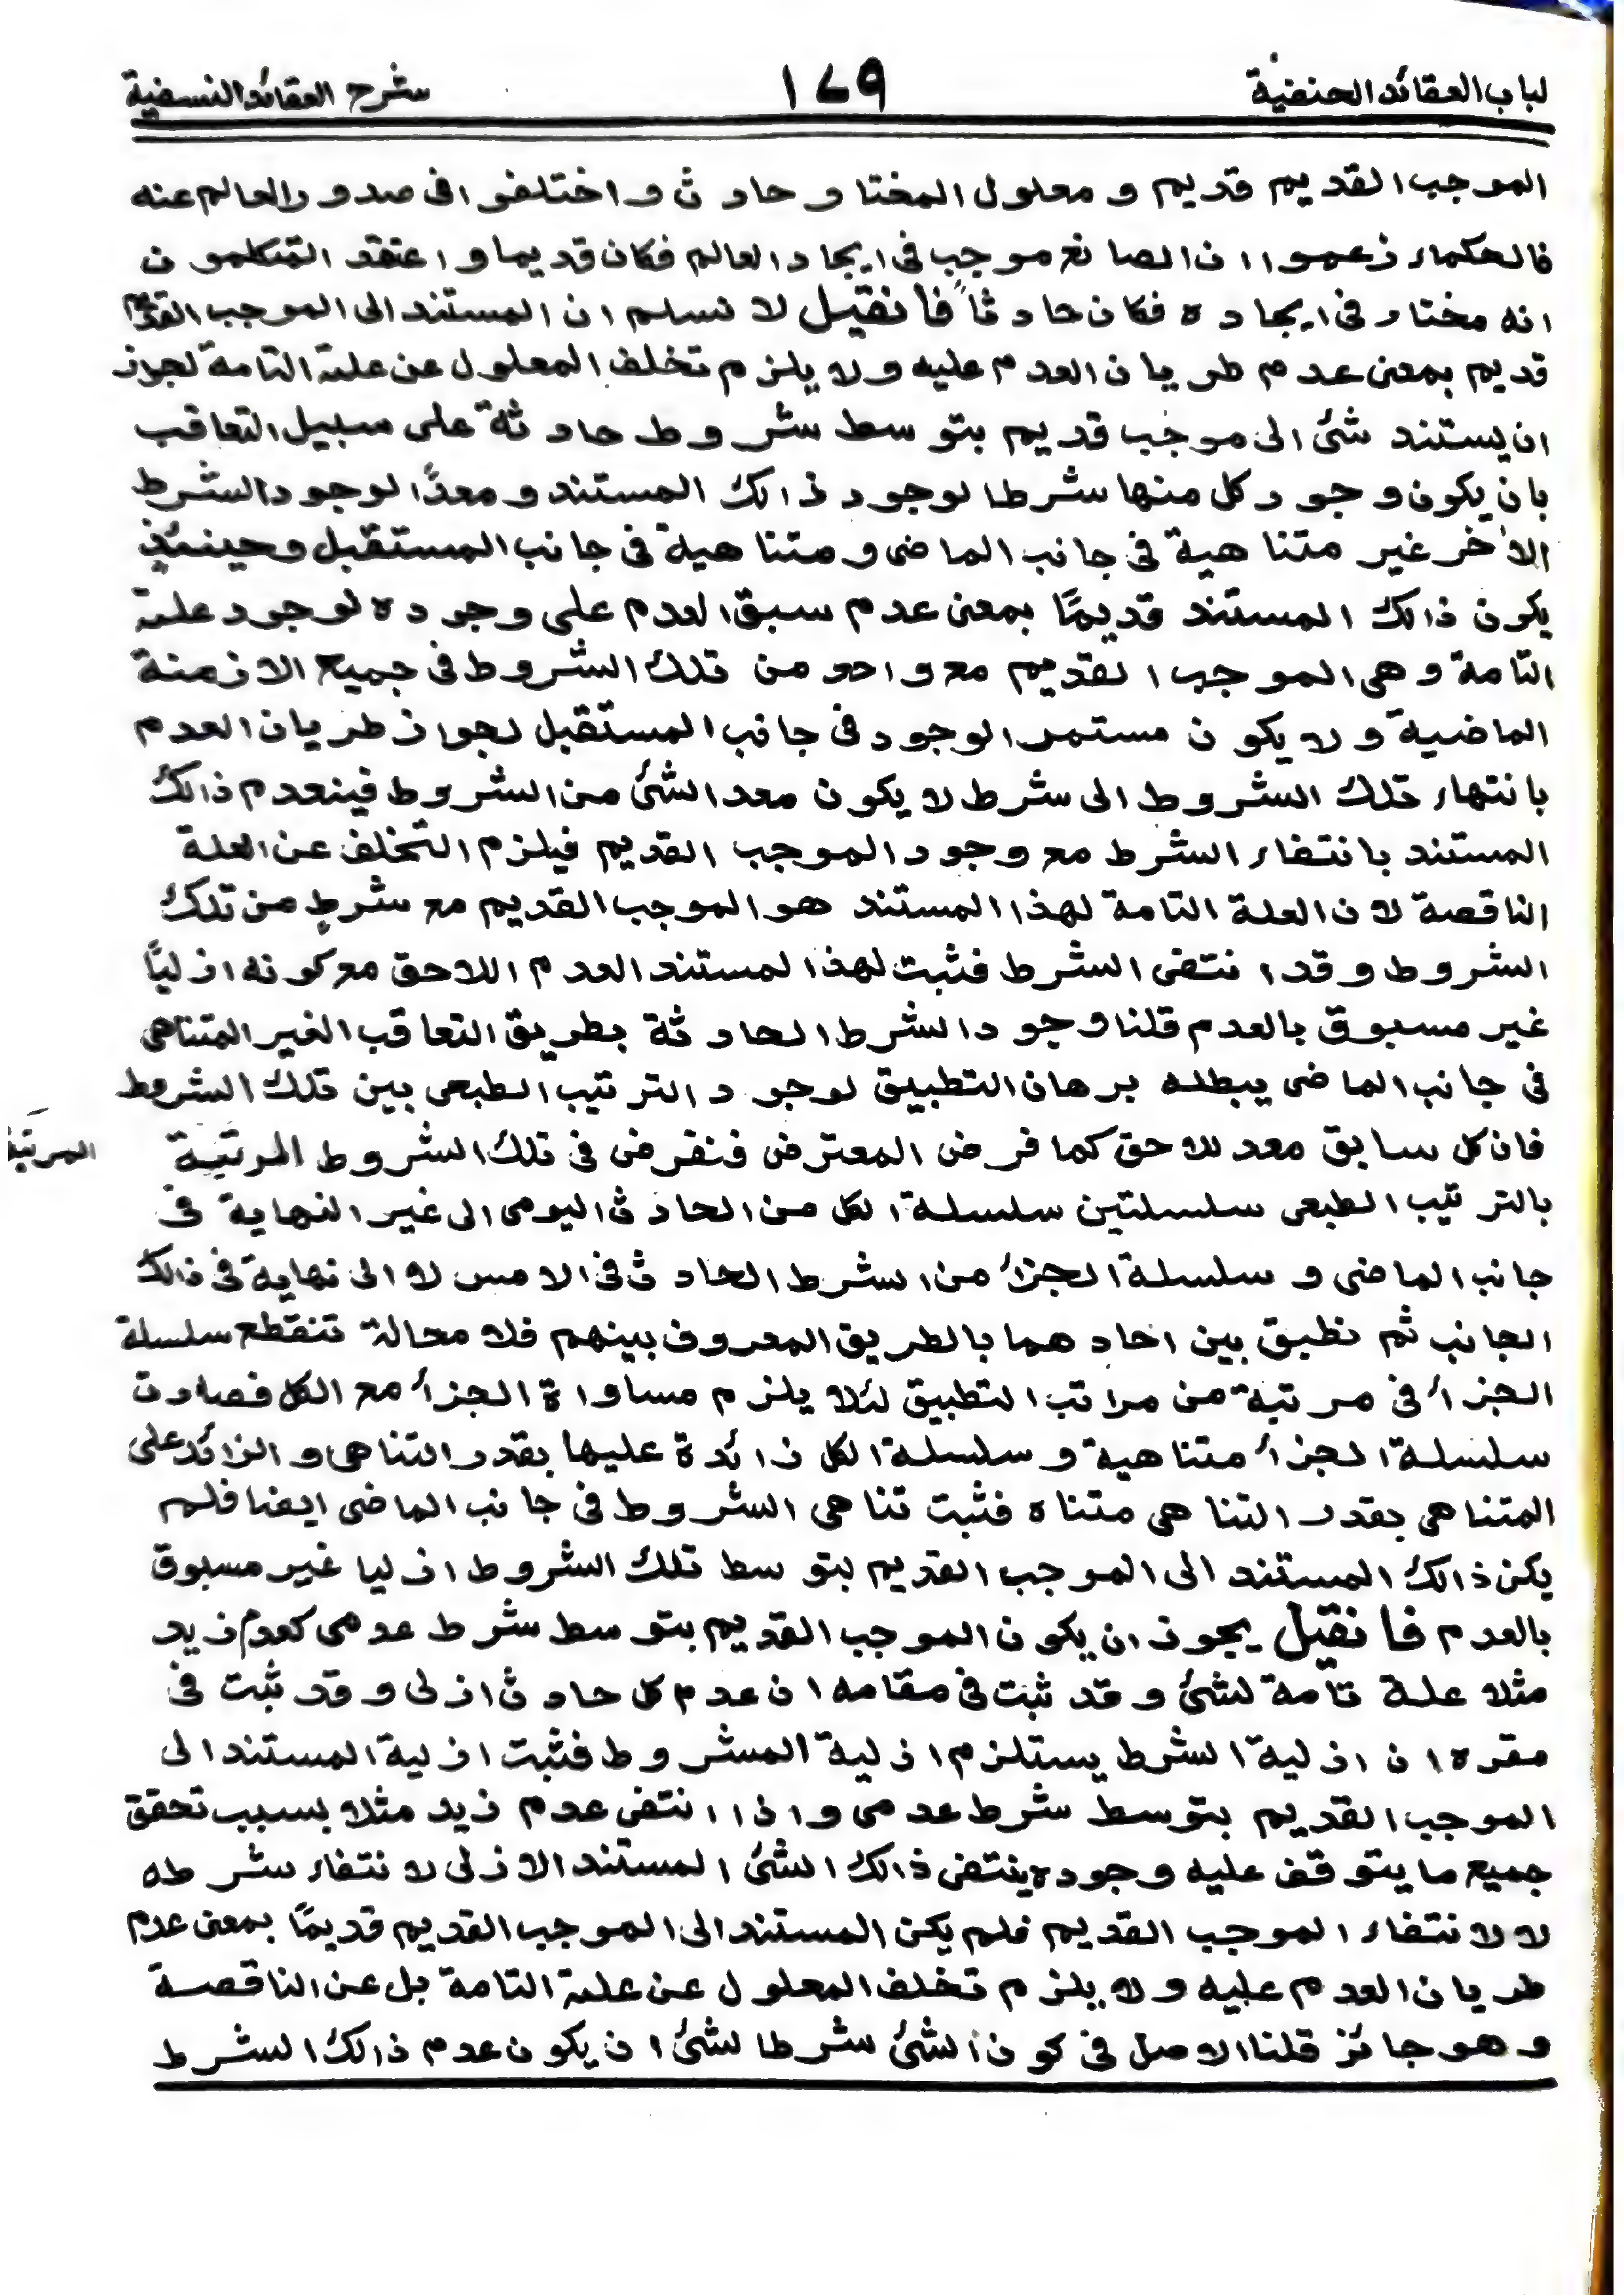 لباب العقائد الحنفية ١٤٩ شرح العقائد النسفية
الموجب القديم قديم و معلول المختار حادث و اختلفوا فى صدور العالم عنه
فالحكماء زعموا ان الصانع موجب فى ايجاد العالم فكان قديما و اعتقد المتكلمون
انه مختار فى ايجاده فكان حادثاً فأنقيل لا نسلم ان المستند الى الموجب القديم
قديم بمعنى عدم طريان العدم عليه ولا يلزم تخلف المعلول عن علته التامة لجواز
ان يستند شئ الى موجب قديم بتوسط شروط حادثة على سبيل التعاقب
بان يكون وجود كل منها شرطا لوجود ذالك المستند و معدًا لوجود الشرط
الأخر غير متناهية فى جانب الماضى و متناهية فى جانب المستقبل وحينئذٍ
يكون ذالك المستند قديمًا بمعنى عدم سبق العدم على وجوده لوجود علته
التامة و هى الموجب القديم مع واحد من تلك الشروط فى جميع الازمنة
الماضية ولا يكون مستمر الوجود فى جانب المستقبل لجواز طريان العدم
بانتهاء تلك الشروط الى شرط لا يكون معدا لشئ من الشروط فينعدم ذالك
المستند بانتفاء الشرط مع وجود الموجب القديم فيلزم التخلف عن العلة
الناقصة لان العلة التامة لهذا المستند هو الموجب القديم مع شرطٍ من تلك
الشروط وقد انتفى الشرط فثبت لهذا المستند العدم اللاحق مع كونه ازليًا
غير مسبوق بالعدم قلنا وجود الشرط الحادثة بطريق التعاقب الغير المتناهى
فى جانب الماضى يبطله برهان التطبيق لوجود الترتيب الطبعى بين تلك الشروط
فان كل سابق معد للاحق كما فرض المعترض فنفرض فى تلك الشروط المرتبة
المرتبة
بالترتيب الطبعى سلسلتين سلسلة الكل من الحادث اليومى الى غير النهاية فى
جانب الماضى و سلسلة الجزأ من الشرط الحادث فى الامس لا الى نهاية فى ذالك
الجانب ثم نطبق بين احادهما بالطريق المعروف بينهم فلا محالة تنقطع سلسلة
الجزأ فى مرتبة من مراتب التطبيق لئلا يلزم مساواة الجزأ مع الكل فصارت
سلسلة الجزأ متناهية و سلسلة الكل زائدة عليها بقدر التناهى و الزائد على
المتناهى بقدر التناهى متناه فثبت تناهى الشروط فى جانب الماضى ايضا فلم
يكن ذالك المستند الى الموجب القديم بتوسط تلك الشروط ازليا غير مسبوق
بالعدم فانقيل يجوز ان يكون الموجب القديم بتوسط شرط عدمى كعدم زيد
مثلا علة تامة لشئ و قد ثبت فى مقامه ان عدم كل حادث ازلى و قد ثبت فى
مقره ان ازلية الشرط يستلزم ازلية المشروط فثبت ازلية المستند الى
الموجب القديم بتوسط شرط عدمى و اذا انتفى عدم زيد مثلا بسبب تحقق
جميع ما يتوقف عليه وجوده ينتفى ذالك الشئ المستند الازلى لانتفاء شرطه
لا لانتفاء الموجب القديم فلم يكن المستند الى الموجب القديم قديمًا بمعنى عدم
طريان العدم عليه ولا يلزم تخلف المعلول عن علته التامة بل عن الناقصة
و هو جائز قلنا الاصل فى كون الشئ شرطا لشئ ان يكون عدم ذالك الشرط